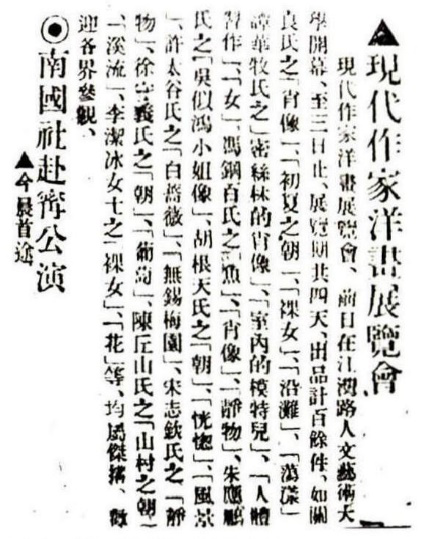 ▲現代作家洋畫展覽會
現代作家洋畫展覽會、前日在江灣路人文藝術大
學開幕、至三日止、展覽期共四天、出品計百餘件、如關
良氏之「肖像」、「初夏之朝」、「裸女」、「沿灘」、「蕩漾」
譚華牧氏之「密絲林的肖像」、「室內的模特兒」、「人體
習作」、「女」、馮鋼百氏之「魚」、「肖像」、「靜物」、朱應鵬
氏之「吳似鴻小姐像」、胡根天氏之「朝」、「恍惚」、「風景
」、許太谷氏之「白薔薇」、「無錫梅園」、宋志欽氏之「靜
物」、徐守義氏之「朝」、「葡萄」、陳丘山氏之「山村之朝」
「溪流」、李潔冰女士之「裸女」、「花」等、均屬傑搆、歡
迎各界參觀、
◉南國社赴甯公演
▲今晨首途